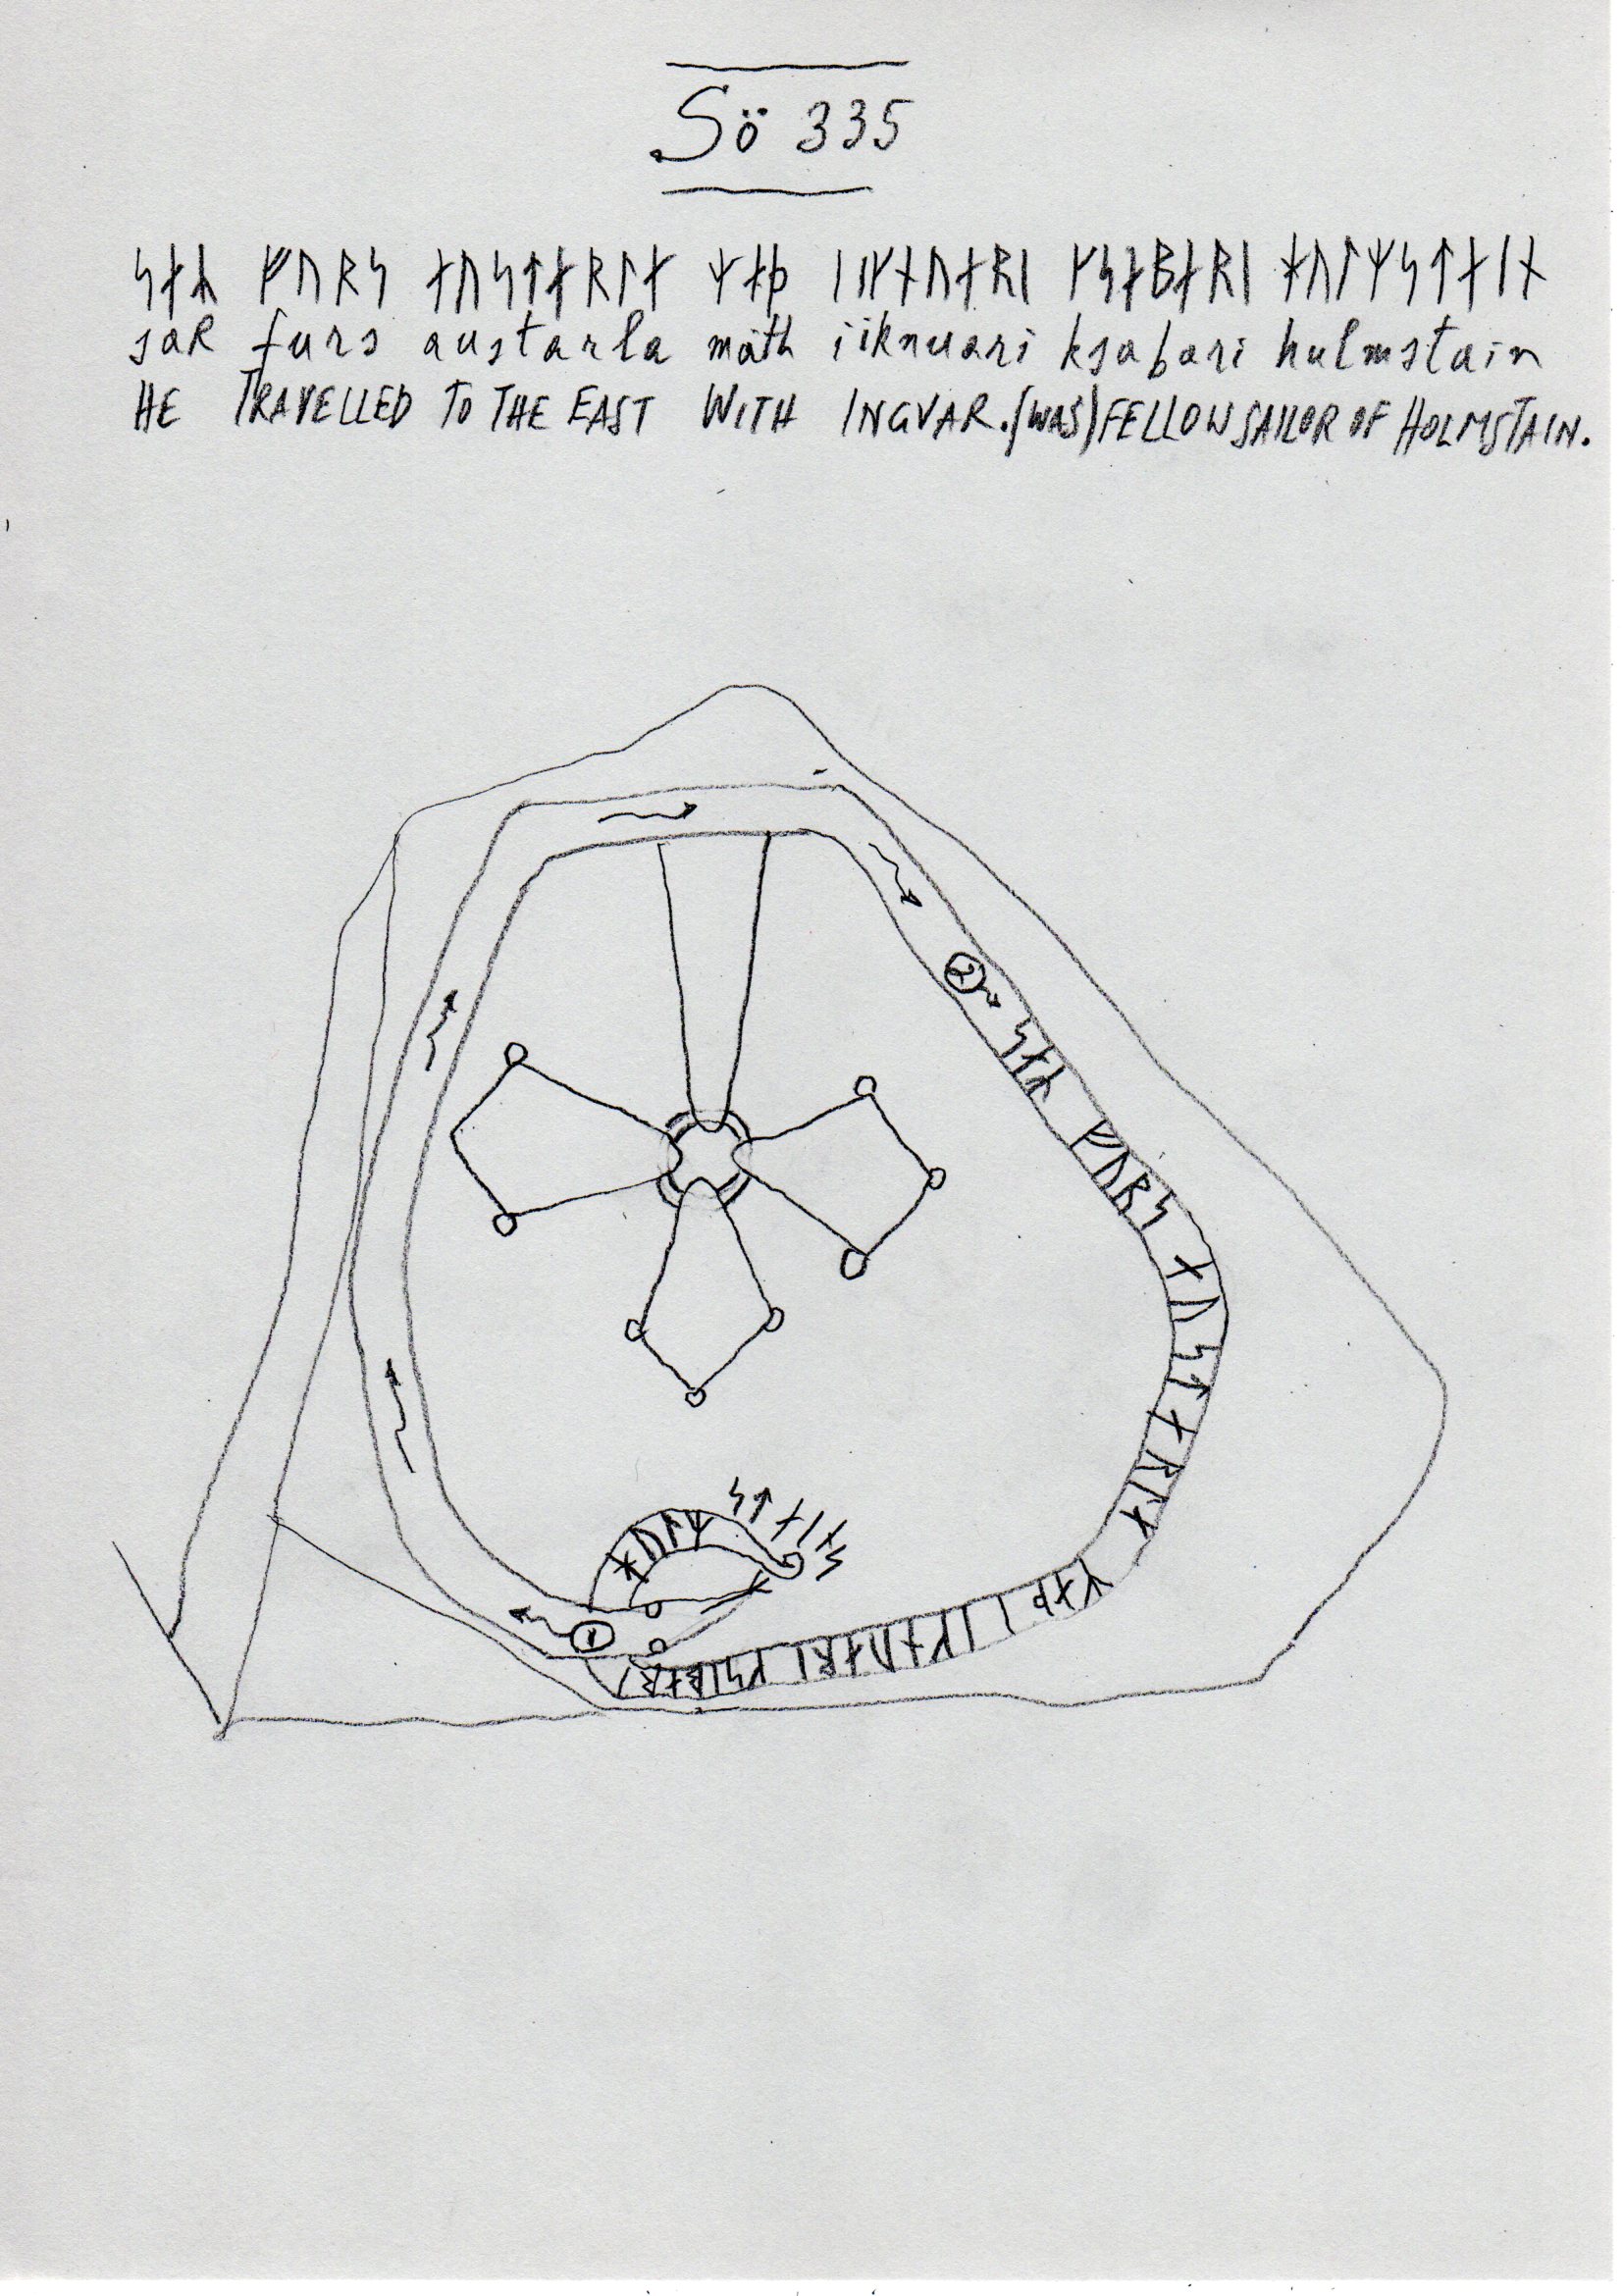 Sö 335
ᛋᛅᛦ ᚠᚢᚱᛋ ᛅᚢᛋᛏᛅᚱᛚᛅ ᛘᛅᚦ ᛁᛁᚴᚾᚢᛅᚱᛁ ᚴᛋᛅᛒᛅᚱᛁ ᚼᚢᛚᛘᛋᛏᛅᛁᚾ
saR furs austarla mäth iiknuari ksabari hulmstain
HE TRAVELLED TO THE EAST WITH INGVAR.(WAS)FELLOWSAILOR OF HOLMSTAIN.
2
ᛋᛅᛦ ᚠᚢᚱᛋ ᛅᚢᛋᛏᛅᚱᛚᛅ
ᛘᛅᚦ
ᚼᚢᛚᛘ ᛋᛏᛅᛁᚾᛋ
1